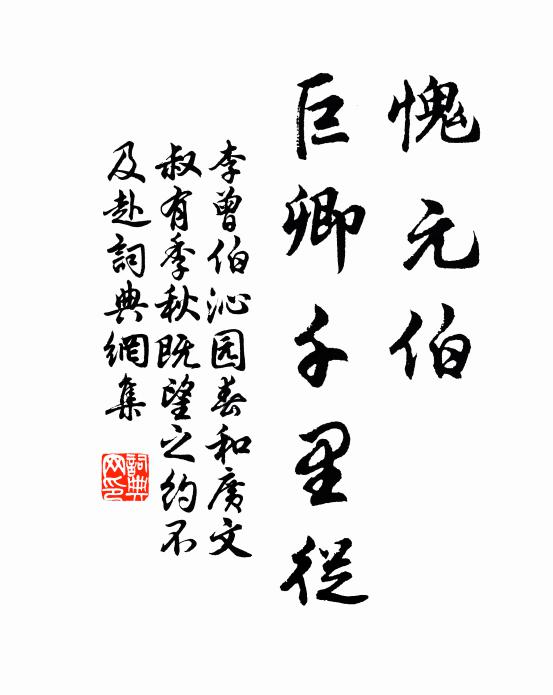 愧元伯
巨卿千里從
李曾伯沁园春和廣文
叔有季秋既望之約不
及赴詞典網集
詞典网印